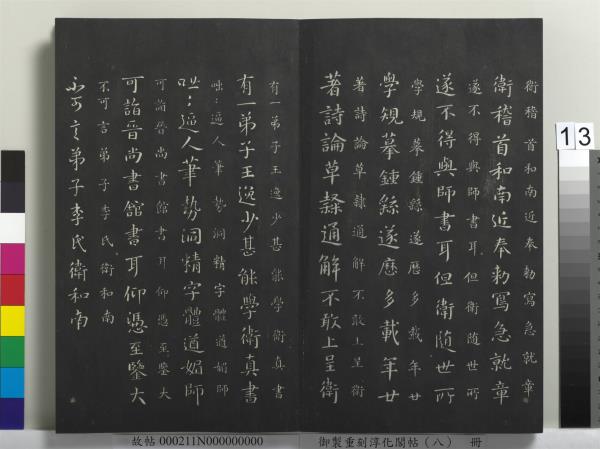 衛稽首和南近奉勅寫急就章
衛稽首和南近奉勅寫急就章
遂不得與師書耳但衛隨世所
遂不得與師書耳但衛随世所
學規摹鍾繇遂歷多載年廿
學規摹鍾繇遂歷多載年廿
著詩論草隸通解不敢上呈衛
著詩論草隸通解不敢上呈衛
有一弟子王逸少甚能學衛真書
有一弟子王逸少甚能學衛真書
咄咄逼人筆勢洞精字體遒媚師
咄咄逼人筆勢洞精字體遒媚師
可詣晉尚書館書耳仰憑至鑒大
可詣晉尚書館書耳仰憑至鑒大
不可言弟子李氏衛和南
不可言弟子李氏衛和南
13
故帖 000211N000000000 御製重刻淳化閣帖（八） 冊